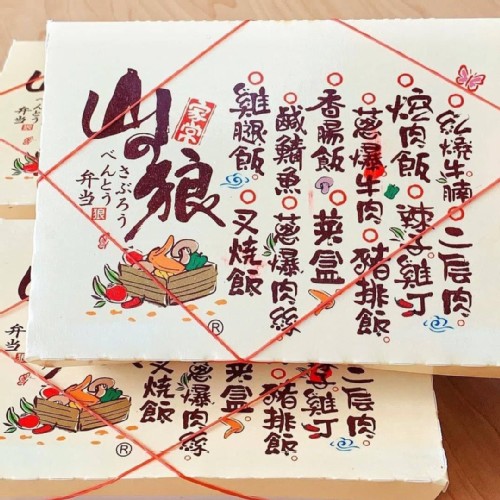 山の狼
家常
さぶろう
べんとう
弁当
狼
®
紅燒牛腩 二层肉
焢肉飯 辣子雞丁
蔥爆牛肉 豬排飯
香腸飯 菜盒
鹹鯖魚 蔥爆肉絲
雞腿飯 叉燒飯
山
さぶろう
べんとう
弁当
弁当
®
二层肉
子雞丁
豬排飯
菜盒
蔥爆肉絲
叉燒飯